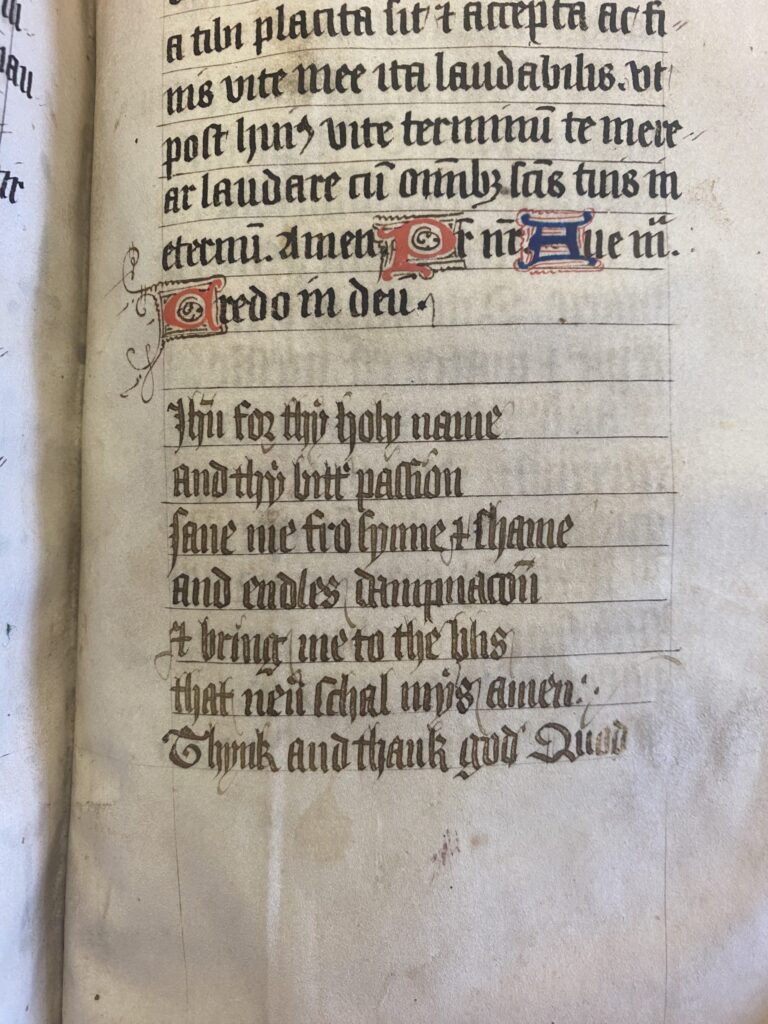 a tibi placita sit ⁊ accepta ac fi
nis vite mee ita laudabilis. vt
post huiꝰ vite terminū te mere
ar laudare cū om̄ibꝫ sc̄is tuis in
eternū. Amen Pr̄ nr̄. Aue m̄.
Credo in deū.
Jhū for thy holy name
and thy bitt̉ passion
saue me fro synne ⁊ shame
and endles dampnacoū
⁊ bring me to the blis
that neū schal mys amen
Thynk and thank god Quod